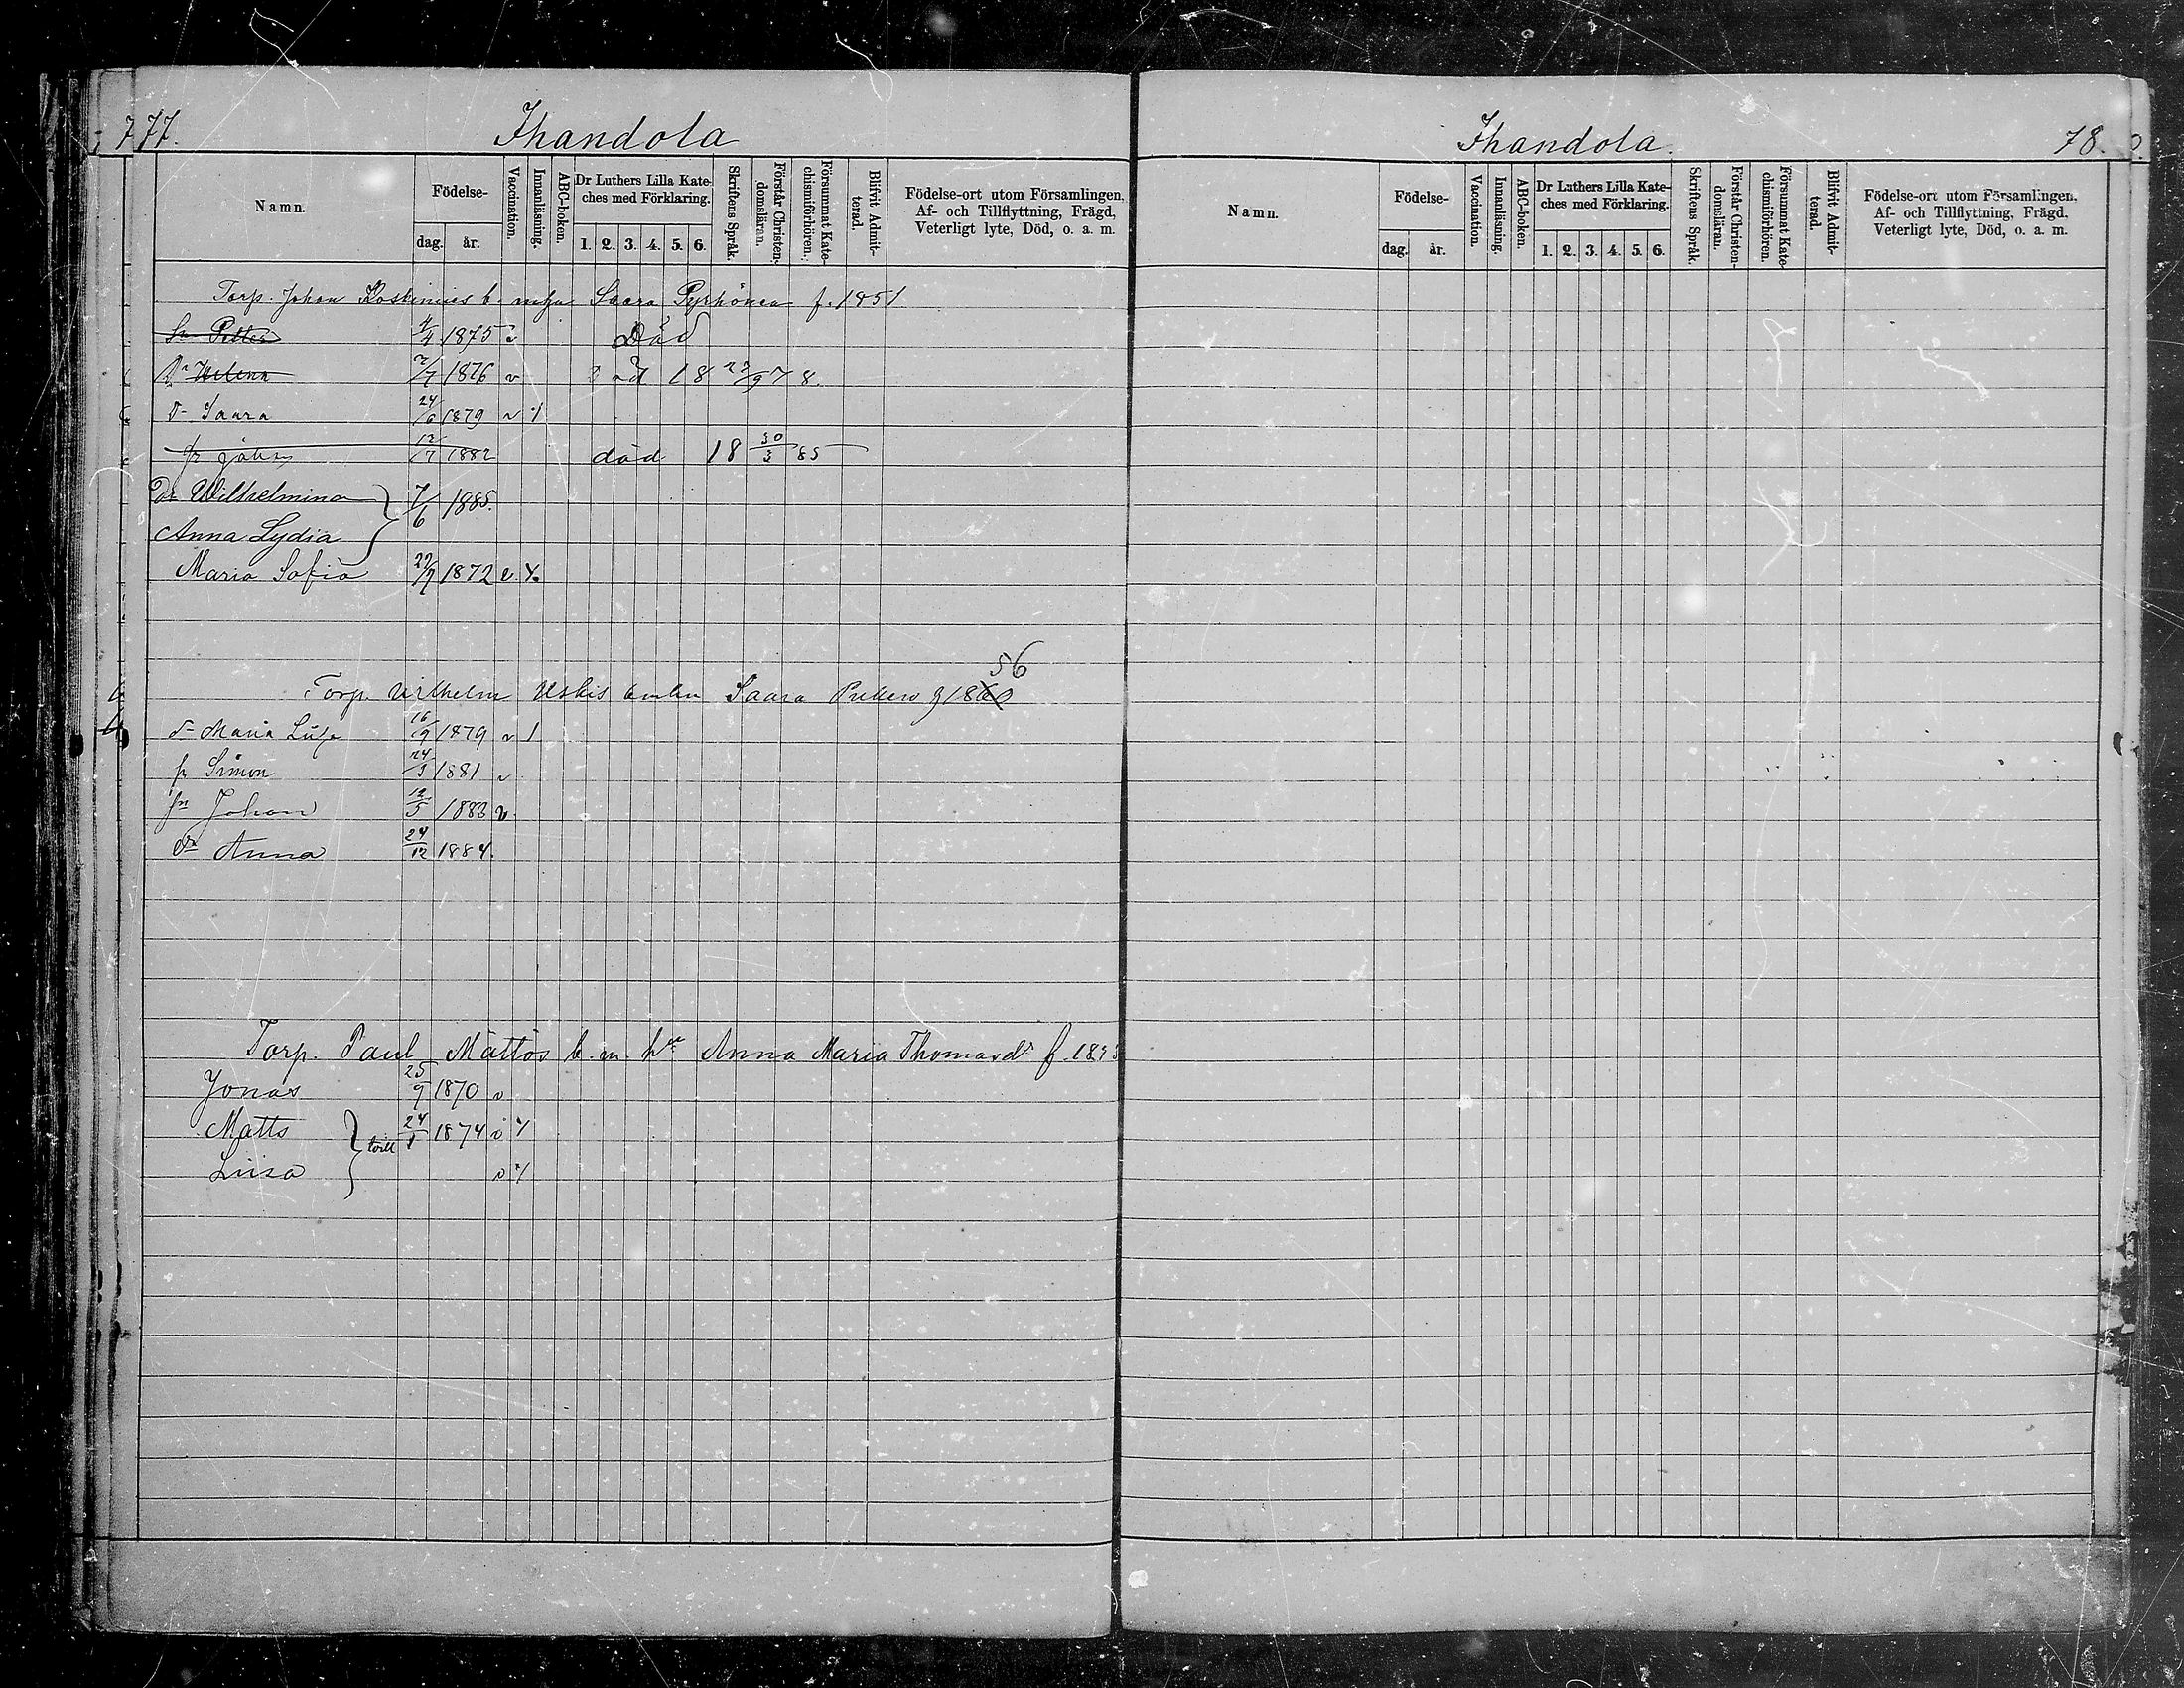 77.
Ihandola
Namn.
Födelse-
dag.
år.
Vaccination.
Innanläsning.
ABC-boken.
Dr Luthers Lilla Kate-
ches med Förklaring.
1. 2. 3. 4. 5. 6.
Skriftens Språk.
Förstår Christen-
domsläran.
Försummat Kate-
chismiförhören.
Blifvit Admit-
terad.
Födelse-ort utom Församlingen,
Af- och Tillflyttning, Frägd,
Veterligt lyte, Död, o. a. m.
Torp. Johan b. Saara Pyrhönen f. 1851
Sn Petter 4/4 1875 v Död
Dr Helena 7/7 1876 v död 18 23/9 78.
Dr Saara 24/6 1879 v 1
12/7 1882 död 18 30/3 85
Dr Wilhelmina } 7/6 1885.
Anna Lydia
Maria Sofia 22/9 1872 v.
56
Torp. Wilhelm Uskis Saara 1860
Dr Maria 16/9 1879 v 1
Simon 24/3 1881 v
Sn Johan 12/5 1883 v.
Dr Anna 24/12 1884.
Torp. Paul Mattös b. m. Anna Maria Thomasdr f. 1843
Jonas 25/9 1870 v
Matts } 24/1 1874 v
Liisa v
Ihandola.
78.
Namn.
Födelse-
dag.
år.
Vaccination.
Innanläsning.
ABC-boken.
Dr Luthers Lilla Kate-
ches med Förklaring.
1. 2. 3. 4. 5. 6.
Skriftens Språk.
Förstår Christen-
domsläran.
Försummat Kate-
chismiförhören.
Blifvit Admit-
terad.
Födelse-ort utom Församlingen,
Af- och Tillflyttning, Frägd,
Veterligt lyte, Död, o. a. m.